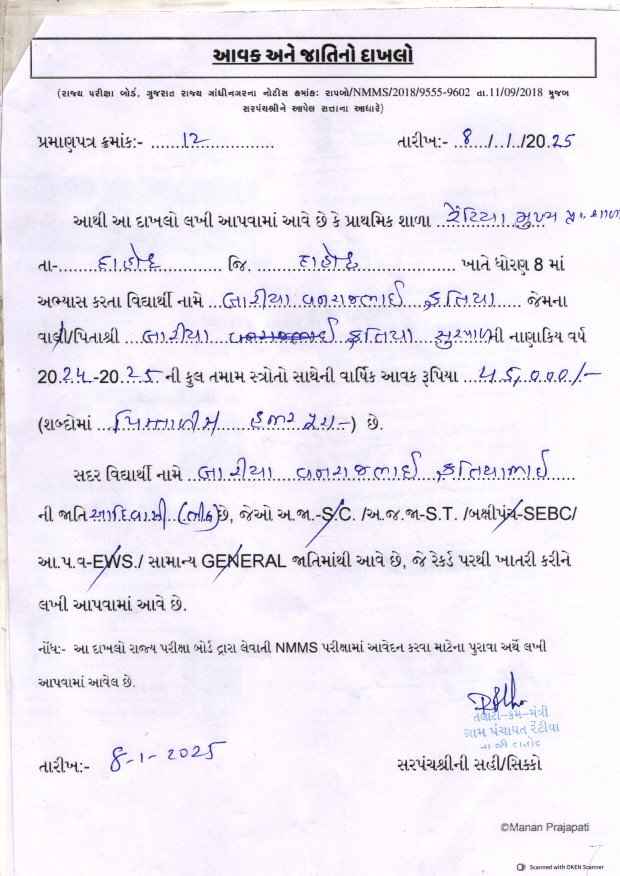 આવક અને જાતિનો દાખલો
(રાજ્ય પરીક્ષા બોર્ડ, ગુજરાત રાજ્ય ગાંધીનગરના નોટીસ ક્રમાંક: રાપબો/NMMS/2018/9555-9602 તા.11/09/2018 મુજબ
સરપંચશ્રીને આપેલ સત્તાના આધારે)
પ્રમાણપત્ર ક્રમાંક:- ......12.............. તારીખ:- ..8../..1../2025
આથી આ દાખલો લખી આપવામાં આવે છે કે પ્રાથમિક શાળા રેંટિયા મુખ્ય પ્રા. શાળા
તા-.......દાહોદ............. જિ. .......દાહોદ................. ખાતે ધોરણ 8 માં
અભ્યાસ કરતા વિદ્યાર્થી નામે ..બારીયા વનરાજભાઈ ફતિયા..... જેમના
વાલી/પિતાશ્રી ...બારીયા ફતિયા મી નાણાકિય વર્ષ
2024-2025 ની કુલ તમામ સ્ત્રોતો સાથેની વાર્ષિક આવક રૂપિયા ...45,000/-
(શબ્દોમાં ...પિસ્તાળીસ હજાર પુરા-) છે.
સદર વિદ્યાર્થી નામે ...બારીયા વનરાજભાઈ ફતિયાભાઈ
ની જાતિ આદિવાસી (ભીલ) છે, જેઓ અ.જા.-S.C. /અ.જ.જા-S.T. /બક્ષીપંચ-SEBC/
આ.પ.વ-EWS./ સામાન્ય GENERAL જાતિમાંથી આવે છે, જે રેકર્ડ પરથી ખાતરી કરીને
લખી આપવામાં આવે છે.
નોંધ:- આ દાખલો રાજ્ય પરીક્ષા બોર્ડ દ્વારા લેવાતી NMMS પરીક્ષામાં આવેદન કરવા માટેના પુરાવા અર્થે લખી
આપવામાં આવેલ છે.
તલાટી-કમ-મંત્રી
ગ્રામ પંચાયત રેંટીયા
તા.જી.દાહોદ
તારીખ:- 8-1-2025 સરપંચશ્રીની સહી/સિક્કો
©Manan Prajapati
Scanned with OKEN Scanner